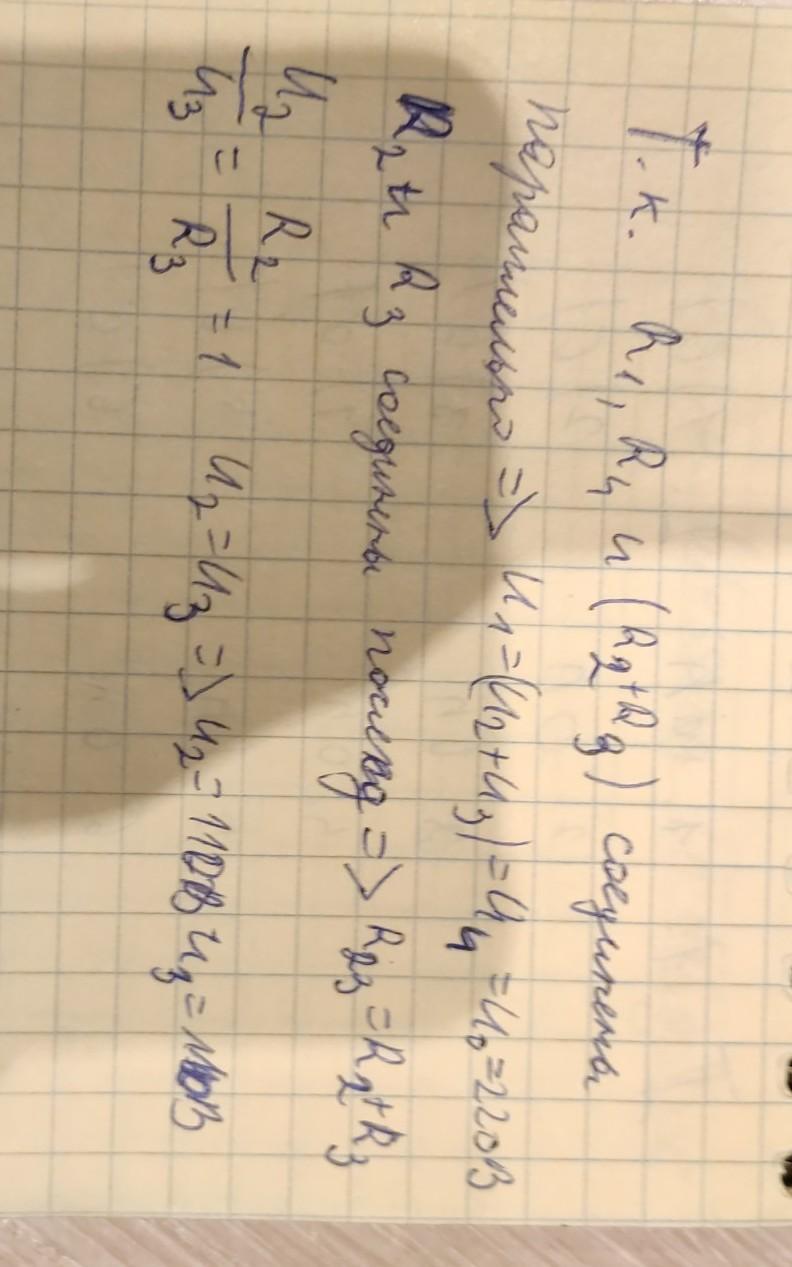 Т.к. R1, R4 и (R2+R3) соединены
параллельно => U1=(U2+U3)=U4=U0=220В
R2 и R3 соединены послед => R23=R2+R3
U2/U3 = R2/R3 = 1 U2=U3 => U2=110В U3=110В